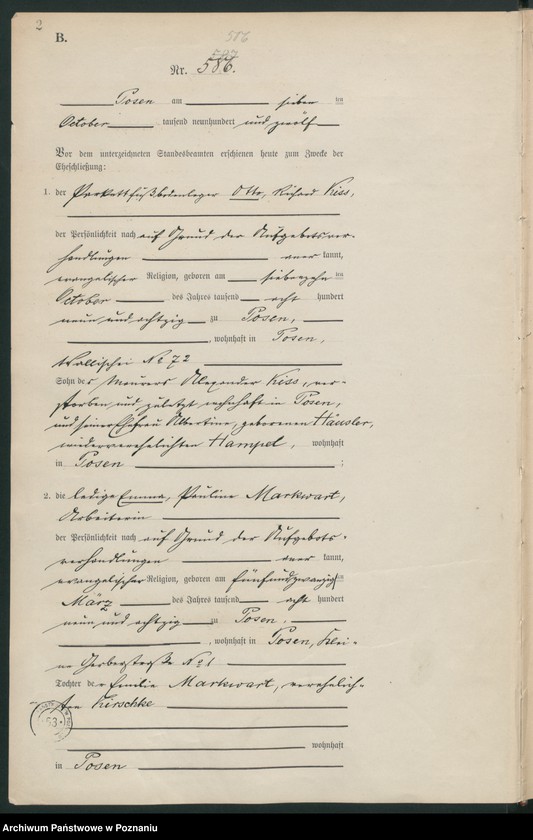 2
B.
586
587
Nr. 586.
Posen am sieben ten
October tausend neunhundert und zwölf
Vor dem unterzeichneten Standesbeamten erschienen heute zum Zwecke der
Eheschließung:
1. der Parkettfußbodenleger Otto, Richard Kiss,
der Persönlichkeit nach auf Grund der Aufgebotsver-
handlungen aner kannt,
evangelischer Religion, geboren am siebenzehn ten
October des Jahres tausend acht hundert
neun und achtzig zu Posen,
, wohnhaft in Posen,
Wallischei No 72
Sohn des Maurers Alexander Kiss, ver-
storben und zuletzt wohnhaft in Posen,
und seiner Ehefrau Albertine, geborenen Häusler,
wiederverehelichten Hampel, wohnhaft
in Posen ;
2. die ledige Emma, Pauline Markwart,
Arbeiterin
der Persönlichkeit nach auf Grund der Aufgebots-
verhandlungen aner kannt,
evangelischer Religion, geboren am fünfundzwanzigsten
März des Jahres tausend acht hundert
neun und achtzig zu Posen,
, wohnhaft in Posen, Klei-
ne Gerberstraße No 1
Tochter der Emilie Markwart, verehelich-
ten Kirschke
53
wohnhaft
in Posen
Archiwum Państwowe w Poznaniu